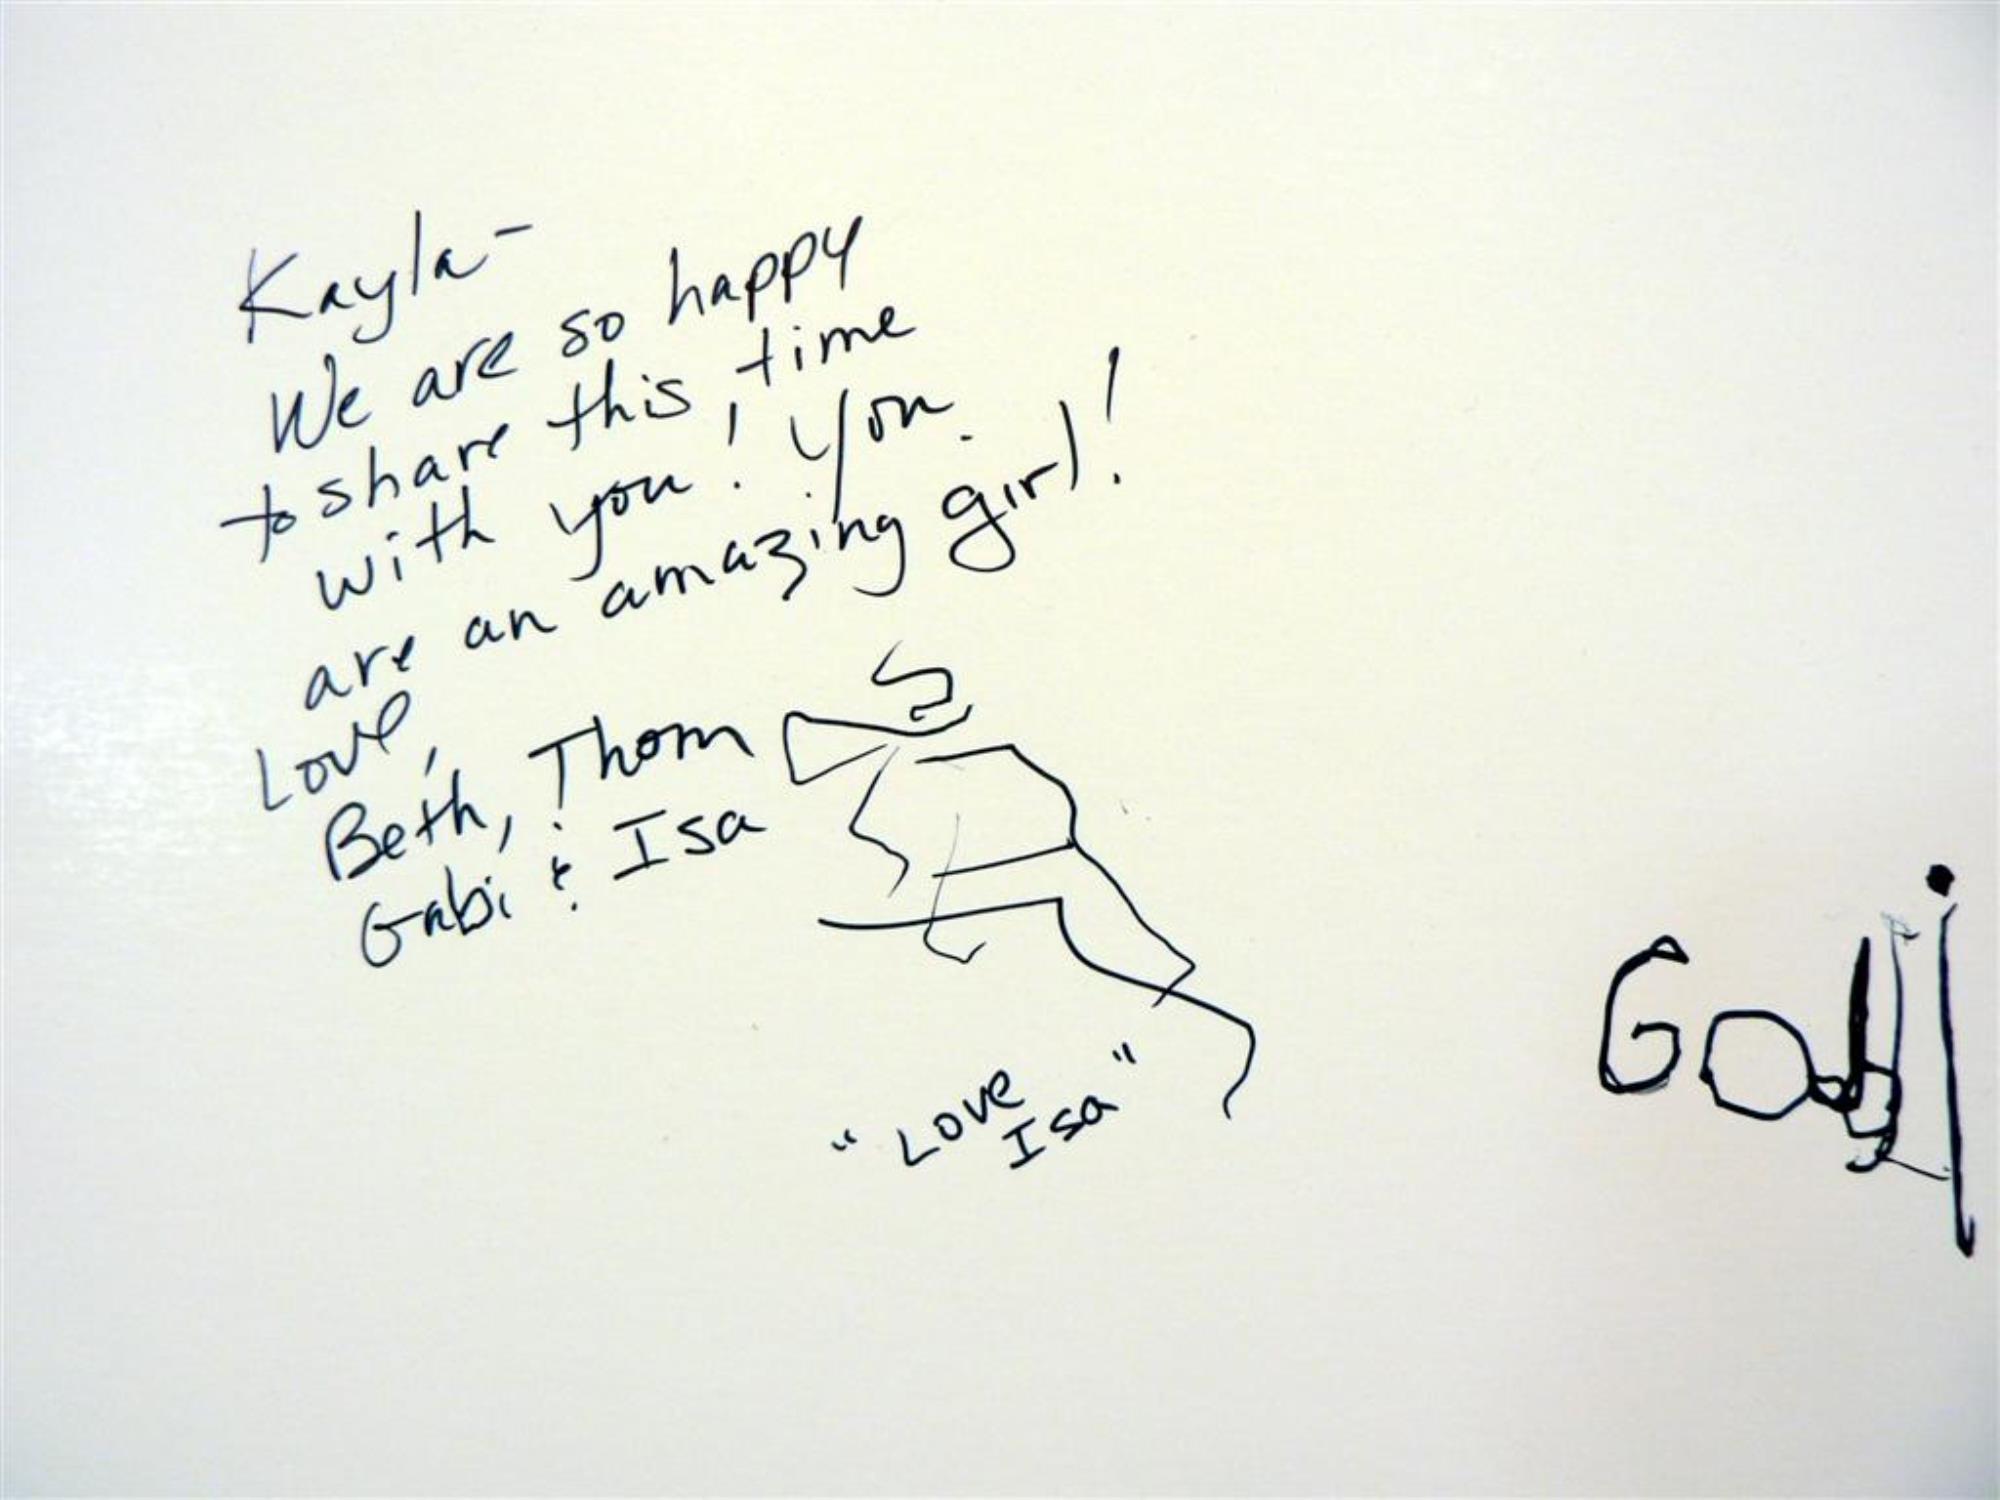 Kayla-
We are so happy
to share this time
with you! You
are an amazing girl!
Love,
Beth, Thom
Gabi & Isa
"Love
Isa"
Gabi